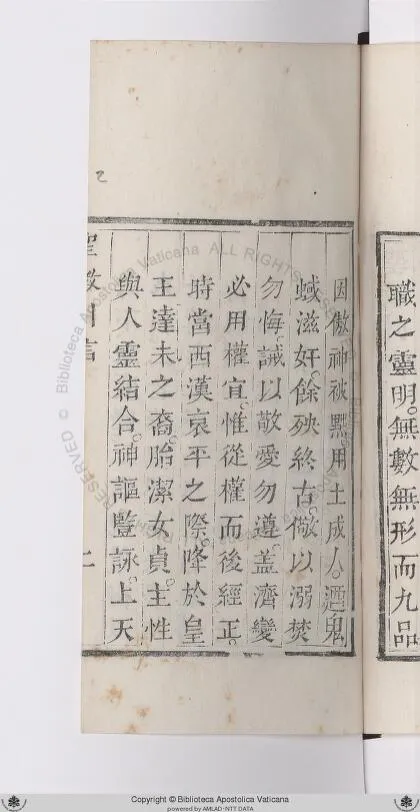 職之靈明。無數無形而九品
因傲神被黜。用土成人。迺鬼
蜮滋奸。餘殃終古。儆以溺焚
勿悔。誡以敬愛勿遵。蓋濟變
必用權宜。惟從權而後經正。
時當西漢哀平之際。降於皇
王達未之裔。胎潔女貞。主性
與人靈結合。神謳豎詠。上天
聖教引言
二
2
© Biblioteca Apostolica Vaticana ALL RIGHTS RESERVED
Copyright © Biblioteca Apostolica Vaticana
powered by AMLAD-NTT DATA